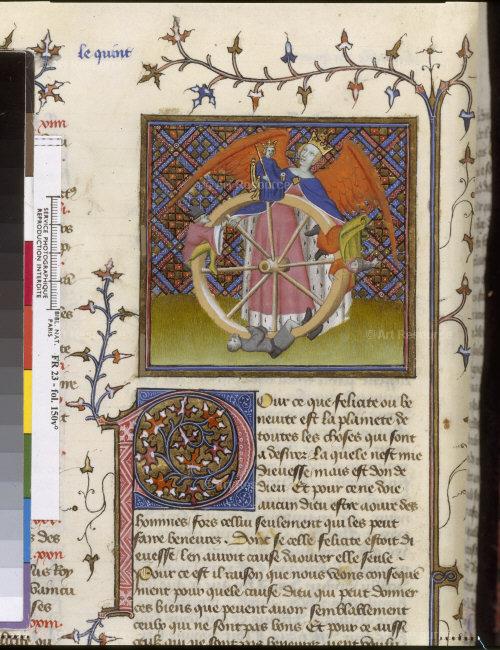 le quint
SERVICE PHOTOGRAPHIQUE
REPRODUCTION INTERDITE
BIBL. NAT.
PARIS
FR 23 - fol. 150v°
© Art Resource
© Art Resource
Pour ce que felicite ou be
neurte est la planete de
toutes les choses qui sont
a desirer. La quele nest mie
dieuesse mais est don de
dieu Et pour ce ne doie
aucun dieu estre aoure des
hommes fors cellui seulement qui les peut
faire beneurez. Donc se celle felicite estoit di
euesse len auroit cause daourer elle seule.
Pour ce est il raison que nous veons conseque
ment pour quele cause dieu qui peut donner
ces biens que peuent auoir semblablement
ceulx qui ne sont pas bons Et pour ce aussi
ceulx qui ne sont pas beneurez